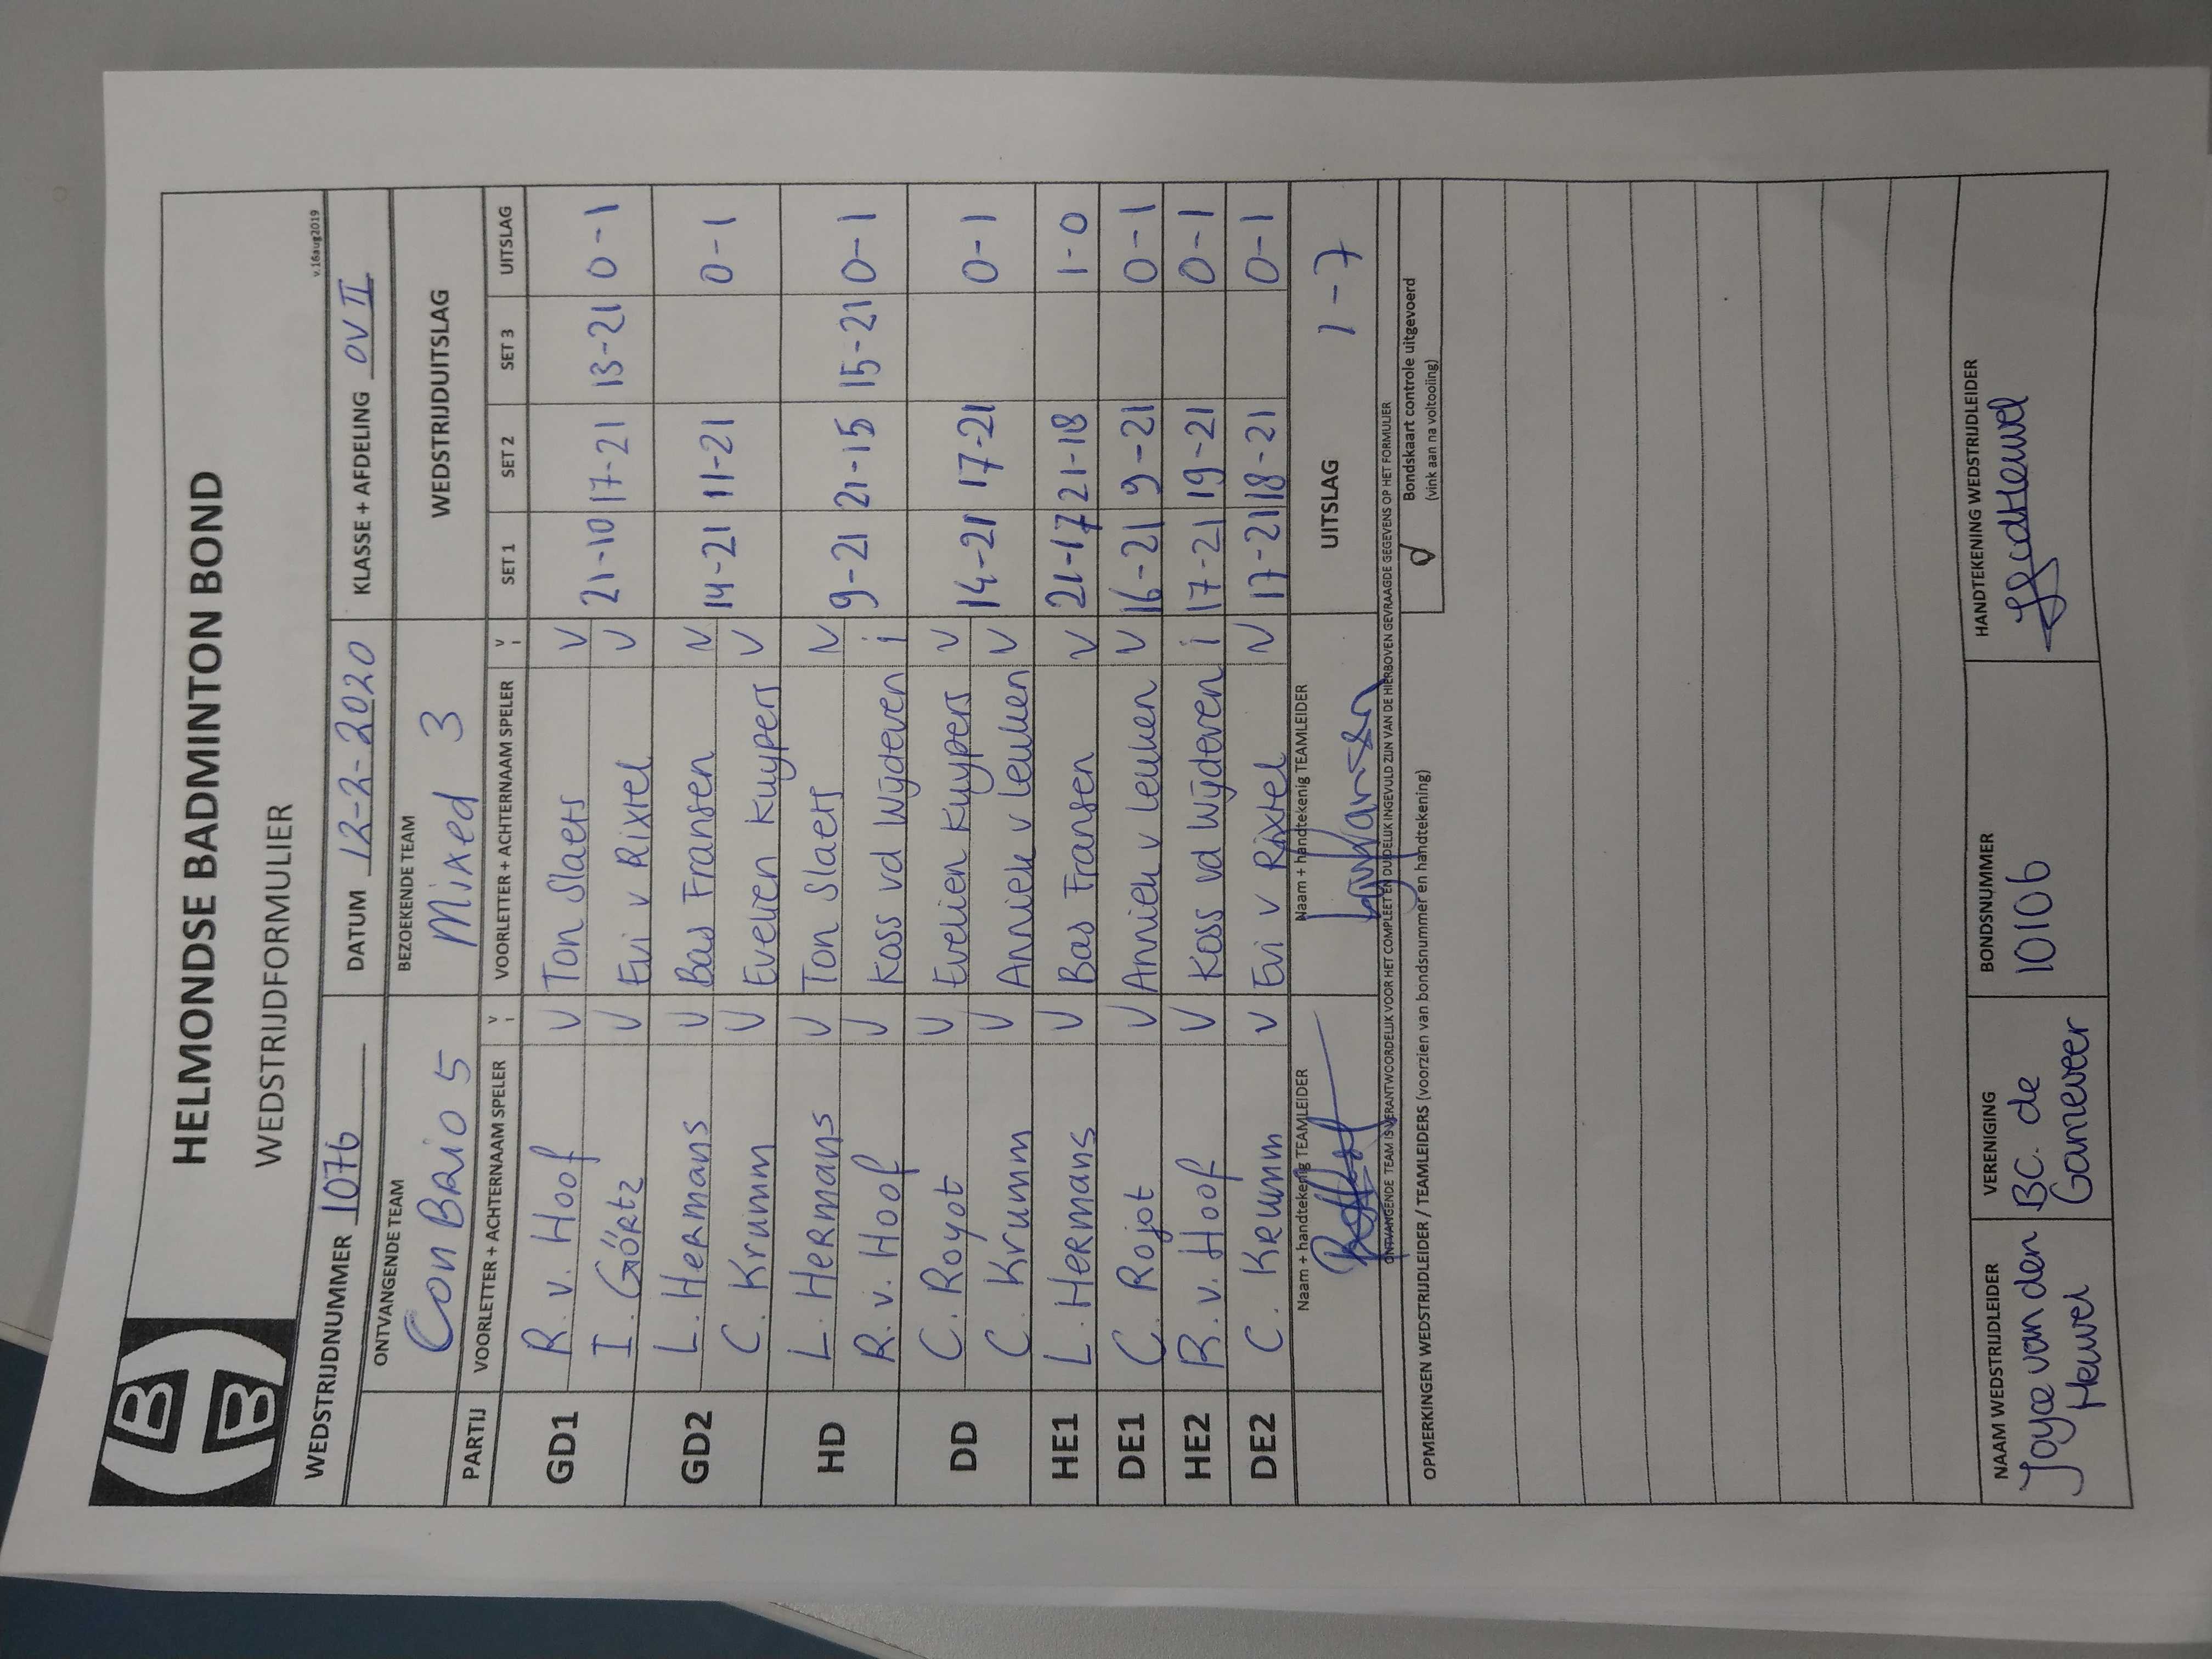 HELMONDSE BADMINTON BOND
WEDSTRIJDFORMULIER
v.16aug2019
WEDSTRIJDNUMMER 1076 DATUM 12-2-2020 KLASSE + AFDELING OV II
ONTVANGENDE TEAM BEZOEKENDE TEAM WEDSTRIJDUITSLAG
Con Brio 5 Mixed 3
PARTIJ VOORLETTER + ACHTERNAAM SPELER V i VOORLETTER + ACHTERNAAM SPELER V i SET 1 SET 2 SET 3 UITSLAG
GD1 R. v. Hoof V Ton Slaets V 21-10 17-21 13-21 0-1
I. Görtz V Evi v Rixtel V
GD2 L. Hermans V Bas Fransen V 14-21 11-21 0-1
C. Krumm V Evelien Kuypers V
HD L. Hermans V Ton Slaets V 9-21 21-15 15-21 0-1
R. v. Hoof V Koss vd Wijdeven i
DD C. Royot V Evelien Kuypers V 14-21 17-21 0-1
C. Krumm V Anniek v Leuken V
HE1 L. Hermans V Bas Fransen V 21-17 21-18 1-0
DE1 C. Rojot V Anniek v Leuken V 16-21 9-21 0-1
HE2 R. v. Hoof V Koss vd Wijdeven i 17-21 19-21 0-1
DE2 C. Krumm V Evi v Rixtel V 17-21 18-21 0-1
Naam + handtekenig TEAMLEIDER Naam + handtekenig TEAMLEIDER UITSLAG 1-7
ONTVANGENDE TEAM IS VERANTWOORDELIJK VOOR HET COMPLEET EN DUIDELIJK INGEVULD ZIJN VAN DE HIERBOVEN GEVRAAGDE GEGEVENS OP HET FORMULIER
OPMERKINGEN WEDSTRIJDLEIDER / TEAMLEIDERS (voorzien van bondsnummer en handtekening)
Bondskaart controle uitgevoerd
(vink aan na voltooiing)
NAAM WEDSTRIJDLEIDER VERENIGING BONDSNUMMER HANDTEKENING WEDSTRIJDLEIDER
Joyce van den BC. de 10106
Heuvel Ganzeveer